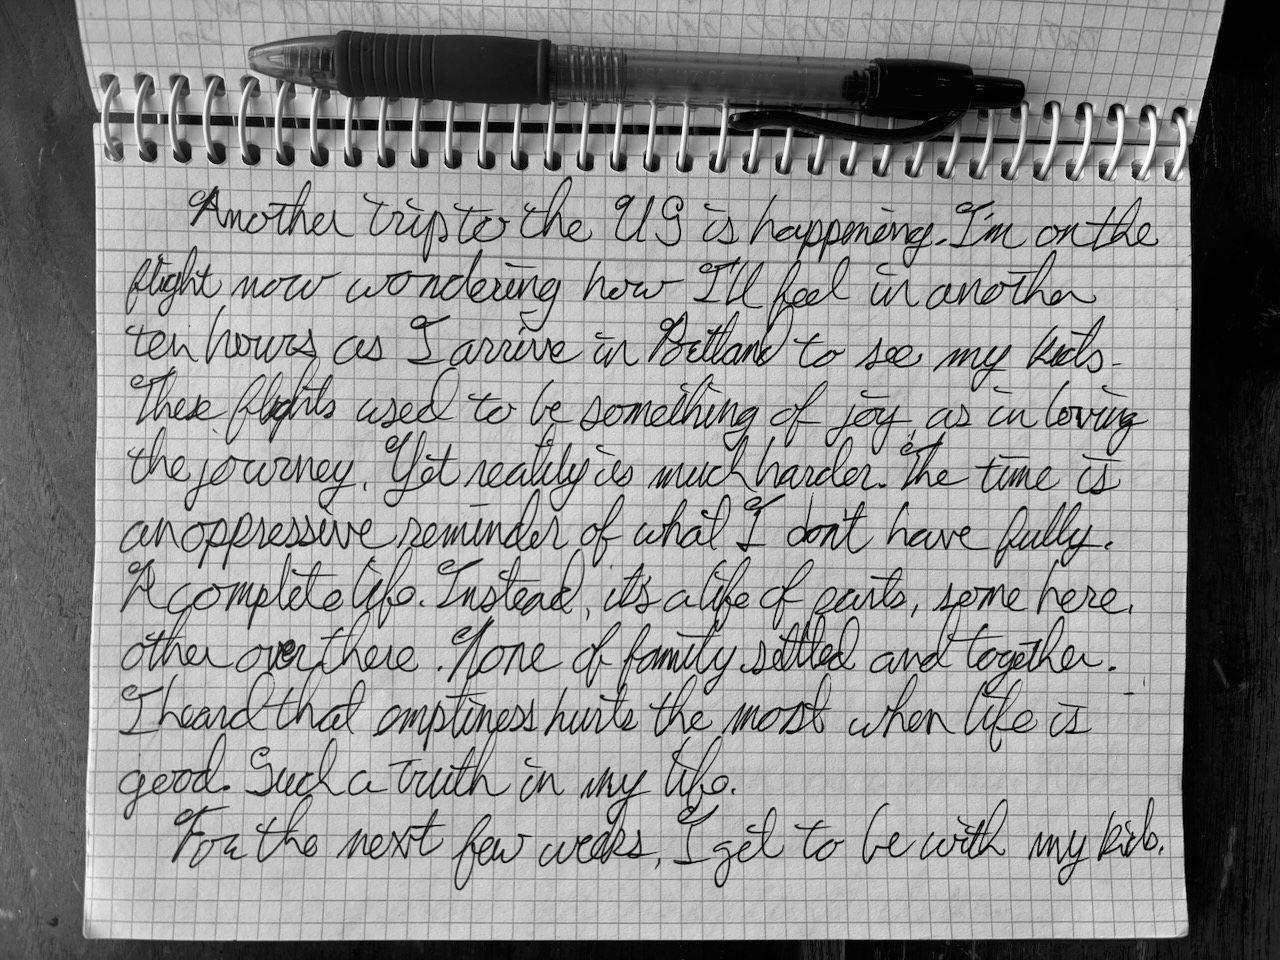 Another trip to the US is happening. I'm on the
flight now wondering how I'll feel in another
ten hours as I arrive in Portland to see my kids.
These flights used to be something of joy, as in loving
the journey. Yet reality is much harder. The time is
an oppressive reminder of what I don't have fully.
A complete life. Instead, it's a life of parts, some here,
other over there. None of family settled and together.
I heard that emptiness hurts the most when life is
good. Such a truth in my life.
For the next few weeks, I get to be with my kids.